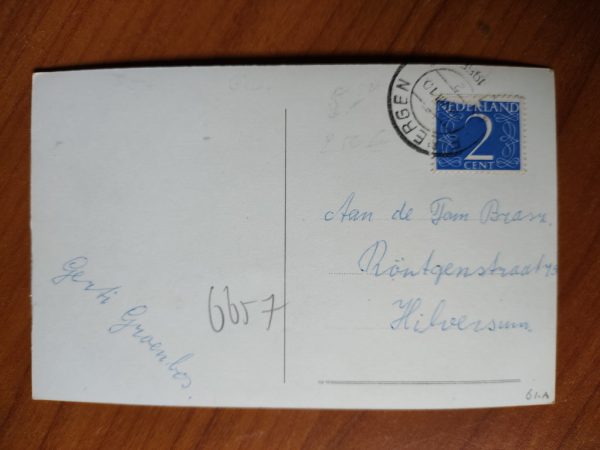 ERGEN
NEDERLAND
2
CENT
Aan de Fam Brase.
Röntgenstraat 43
Hilversum.
Gerti Groenbos.
6657